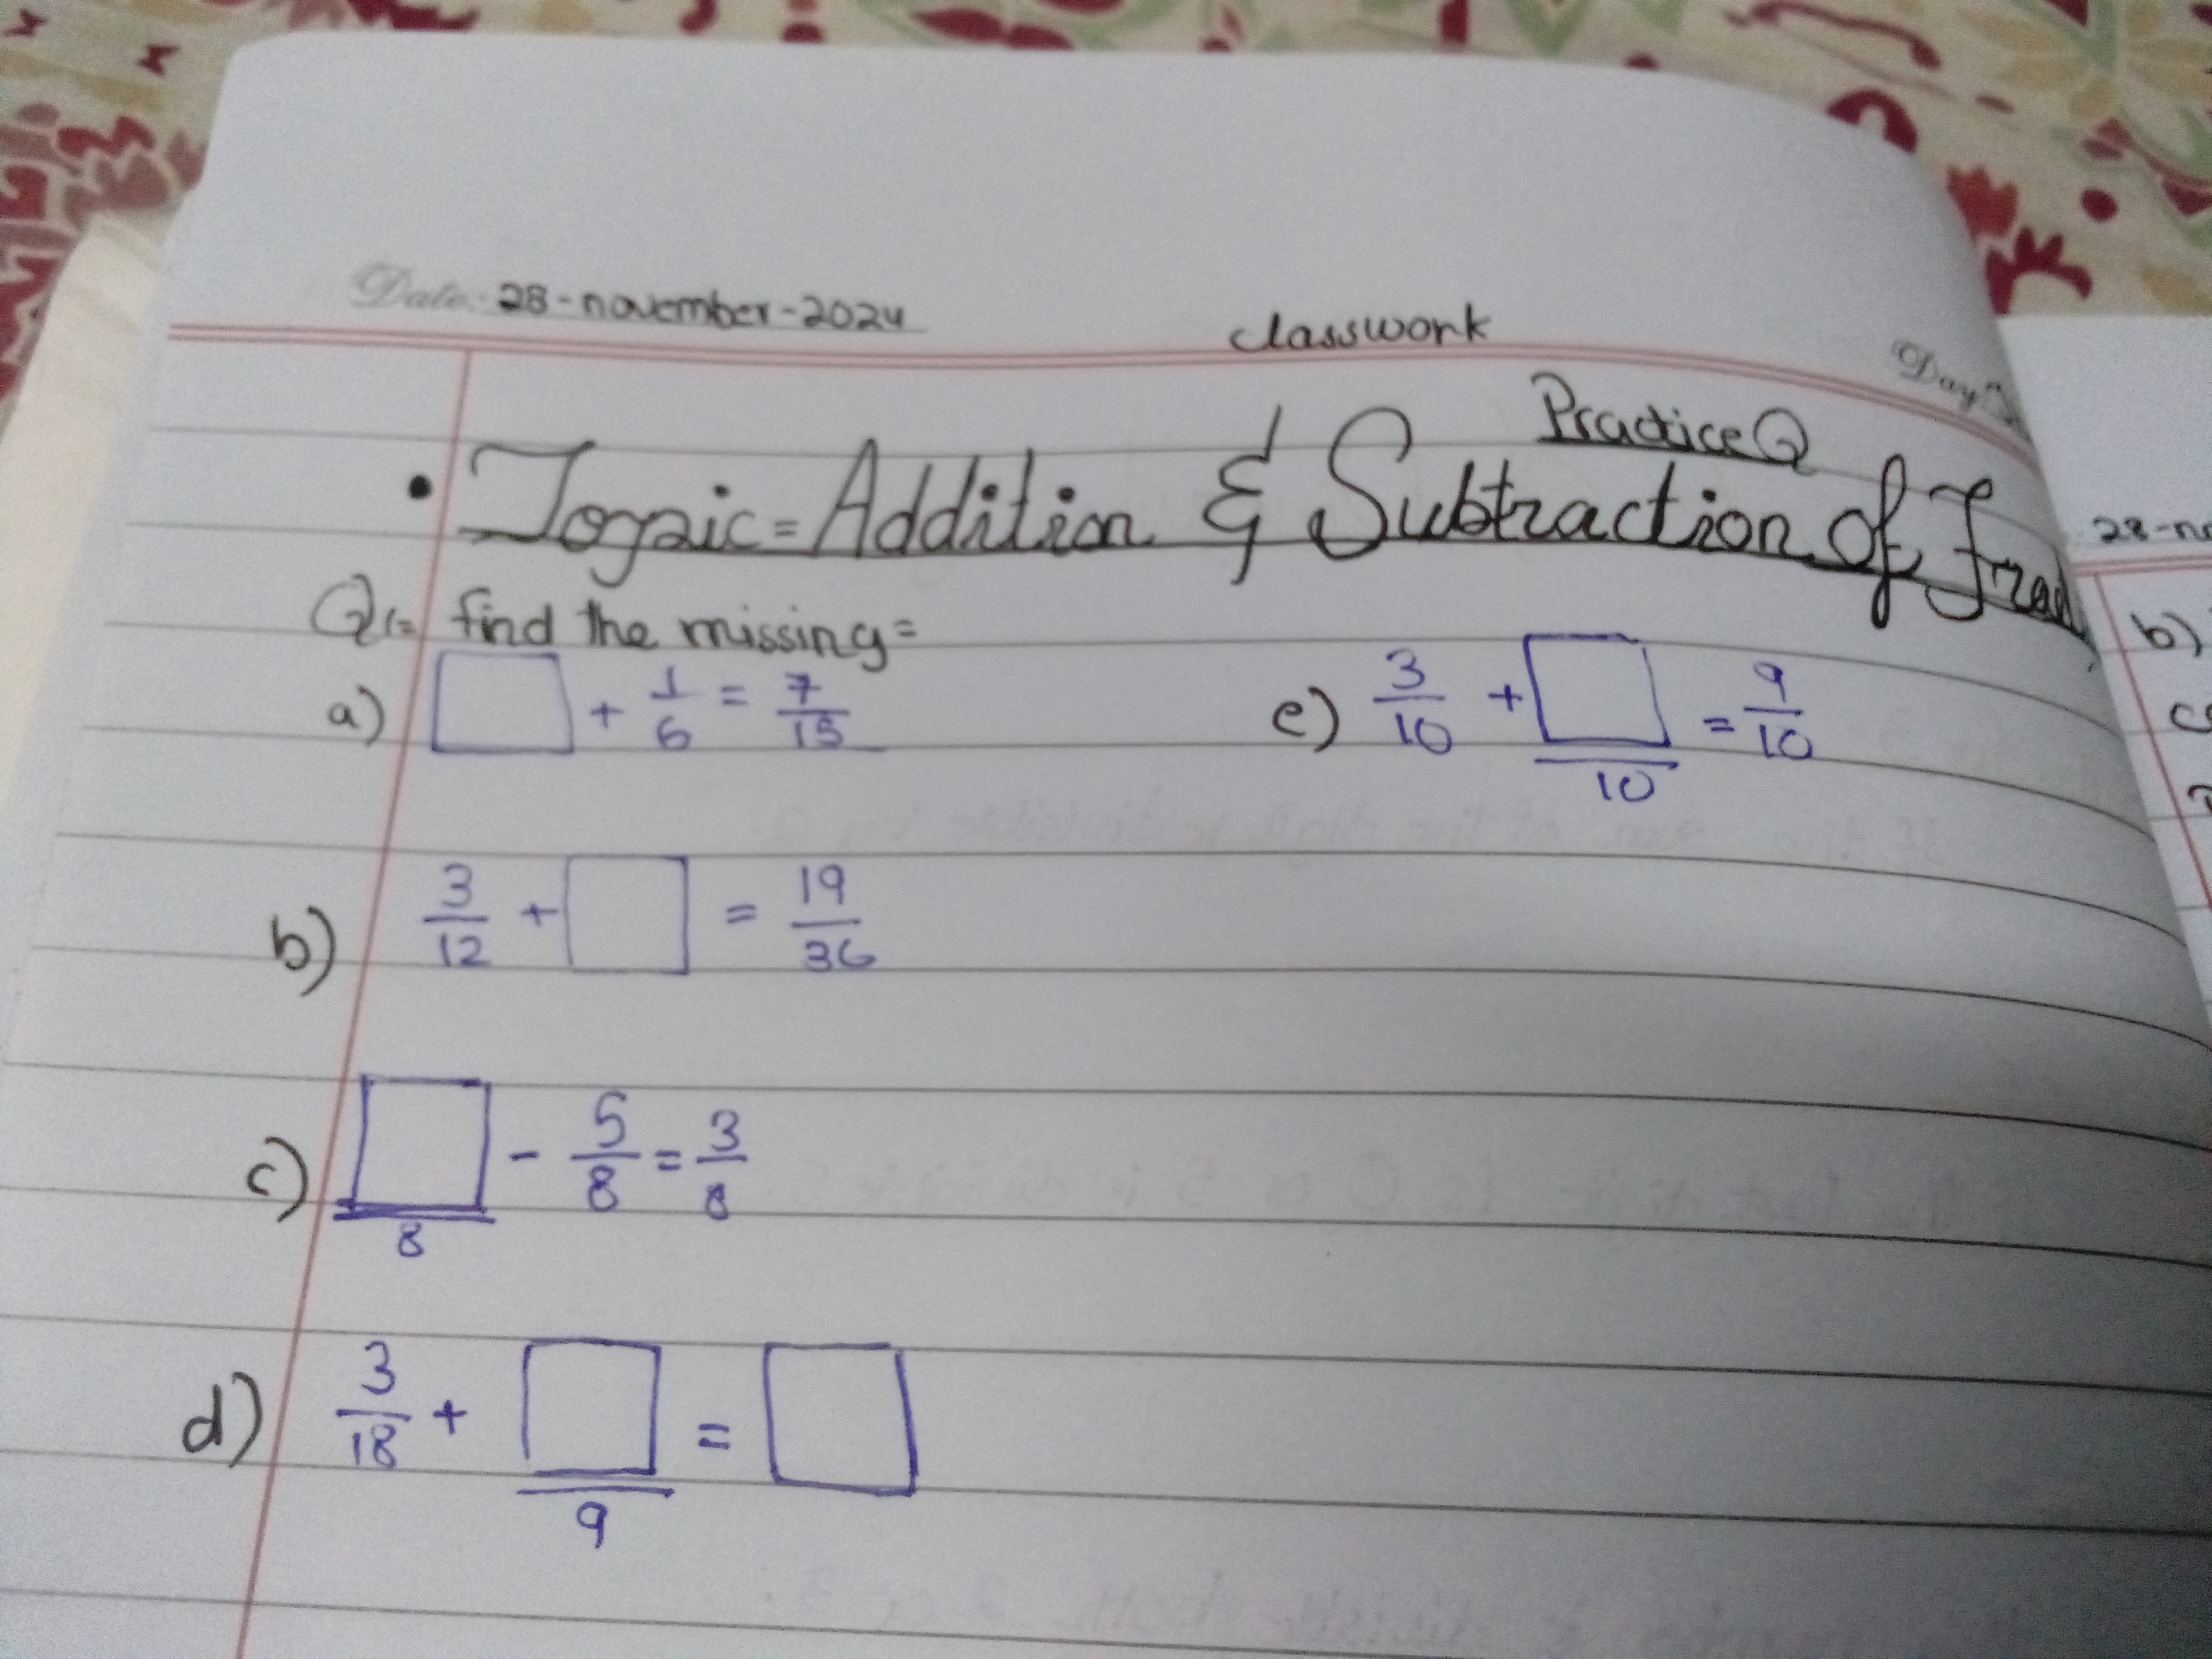 Date: 28-november-2024
classwork
Day
Practice Q
• Topic = Addition & Subtraction of Frac
Q1= find the missing=
a) □ + 1/6 = 7/15
e) 3/10 + □/10 = 9/10
b) 3/12 + □ = 19/36
c) □/8 - 5/8 = 3/8
d) 3/18 + □/9 = □
28-no
b)